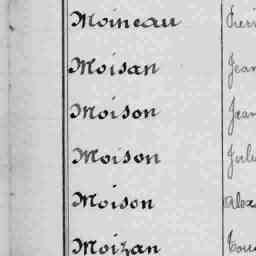 Moineau Pierr
Moisan Jean
Moison Jean
Moison Jule
Moison Alex
Moizan